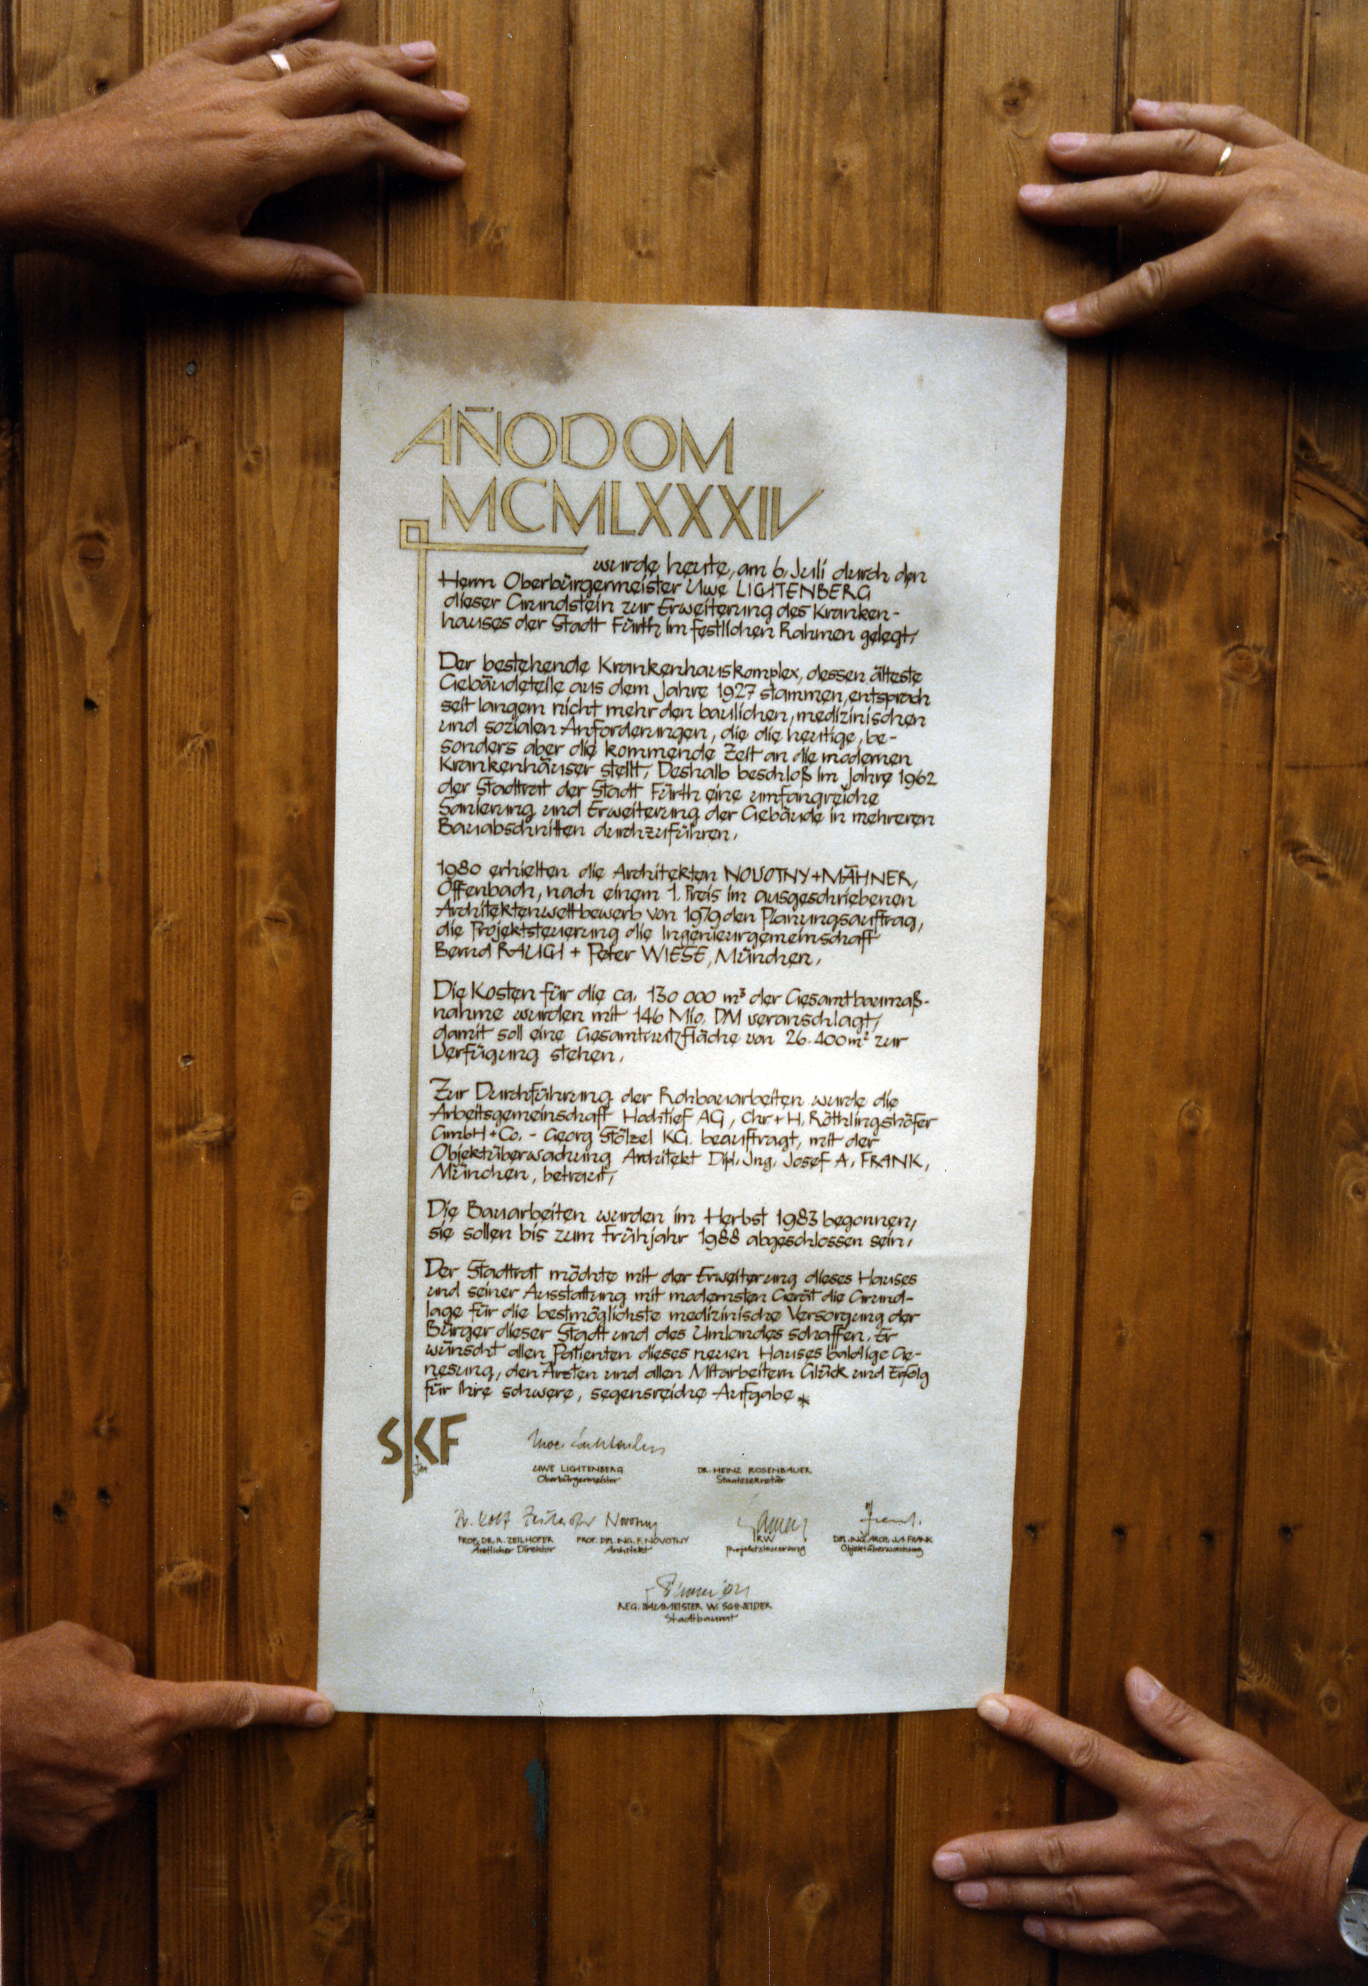 AÑODOM
MCMLXXXIV
wurde heute, am 6. Juli durch den
Herrn Oberbürgermeister Uwe LICHTENBERG
dieser Grundstein zur Erweiterung des Kranken-
hauses der Stadt Fürth im festlichen Rahmen gelegt,
Der bestehende Krankenhauskomplex, dessen älteste
Gebäudeteile aus dem Jahre 1927 stammen, entsprach
seit langem nicht mehr den baulichen, medizinischen
und sozialen Anforderungen, die die heutige, be-
sonders aber die kommende Zeit an die modernen
Krankenhäuser stellt, Deshalb beschloß im Jahre 1962
der Stadtrat der Stadt Fürth eine umfangreiche
Sanierung und Erweiterung der Gebäude in mehreren
Bauabschnitten durchzuführen,
1980 erhielten die Architekten NOVOTNY+MÄHNER,
Offenbach, nach einem 1. Preis im ausgeschriebenen
Architektenwettbewerb von 1979 den Planungsauftrag,
die Projektsteuerung die Ingenieurgemeinschaft
Bernd RAUCH + Peter WIESE, München,
Die Kosten für die ca, 130 000 m³ der Gesamtbaumaß-
nahme wurden mit 146 Mio. DM veranschlagt,
damit soll eine Gesamtnutzfläche von 26.400 m² zur
Verfügung stehen,
Zur Durchführung der Rohbauarbeiten wurde die
Arbeitsgemeinschaft Hochtief AG, Chr + H. Röthlingshöfer
GmbH + Co. - Georg Stölzel KG. beauftragt, mit der
Objektüberwachung Architekt Dipl, Ing, Josef A, FRANK,
München, betraut,
Die Bauarbeiten wurden im Herbst 1983 begonnen,
sie sollen bis zum Frühjahr 1988 abgeschlossen sein,
Der Stadtrat möchte mit der Erweiterung dieses Hauses
und seiner Ausstattung mit modernsten Gerät die Grund-
lage für die bestmögliche medizinische Versorgung der
Bürger dieser Stadt und des Umlandes schaffen, Er
wünscht allen Patienten dieses neuen Hauses baldige Ge-
nesung, den Ärzten und allen Mitarbeitern Glück und Erfolg
für Ihre schwere, segensreiche Aufgabe
SKF
UWE LICHTENBERG DR. HEINZ ROSENBAUER
Oberbürgermeister Staatssekretär
Novotny
PROF. DR. R. ZEILHOFER PROF. DPL. ING. F. NOVOTNY RW DPL. ING. ARCH. J.A FRANK
Ärztlicher Direktor Architekt Projektsteuerung Objektüberwachung
REG. BAUMEISTER W. SCHNEIDER
Stadtbauamt